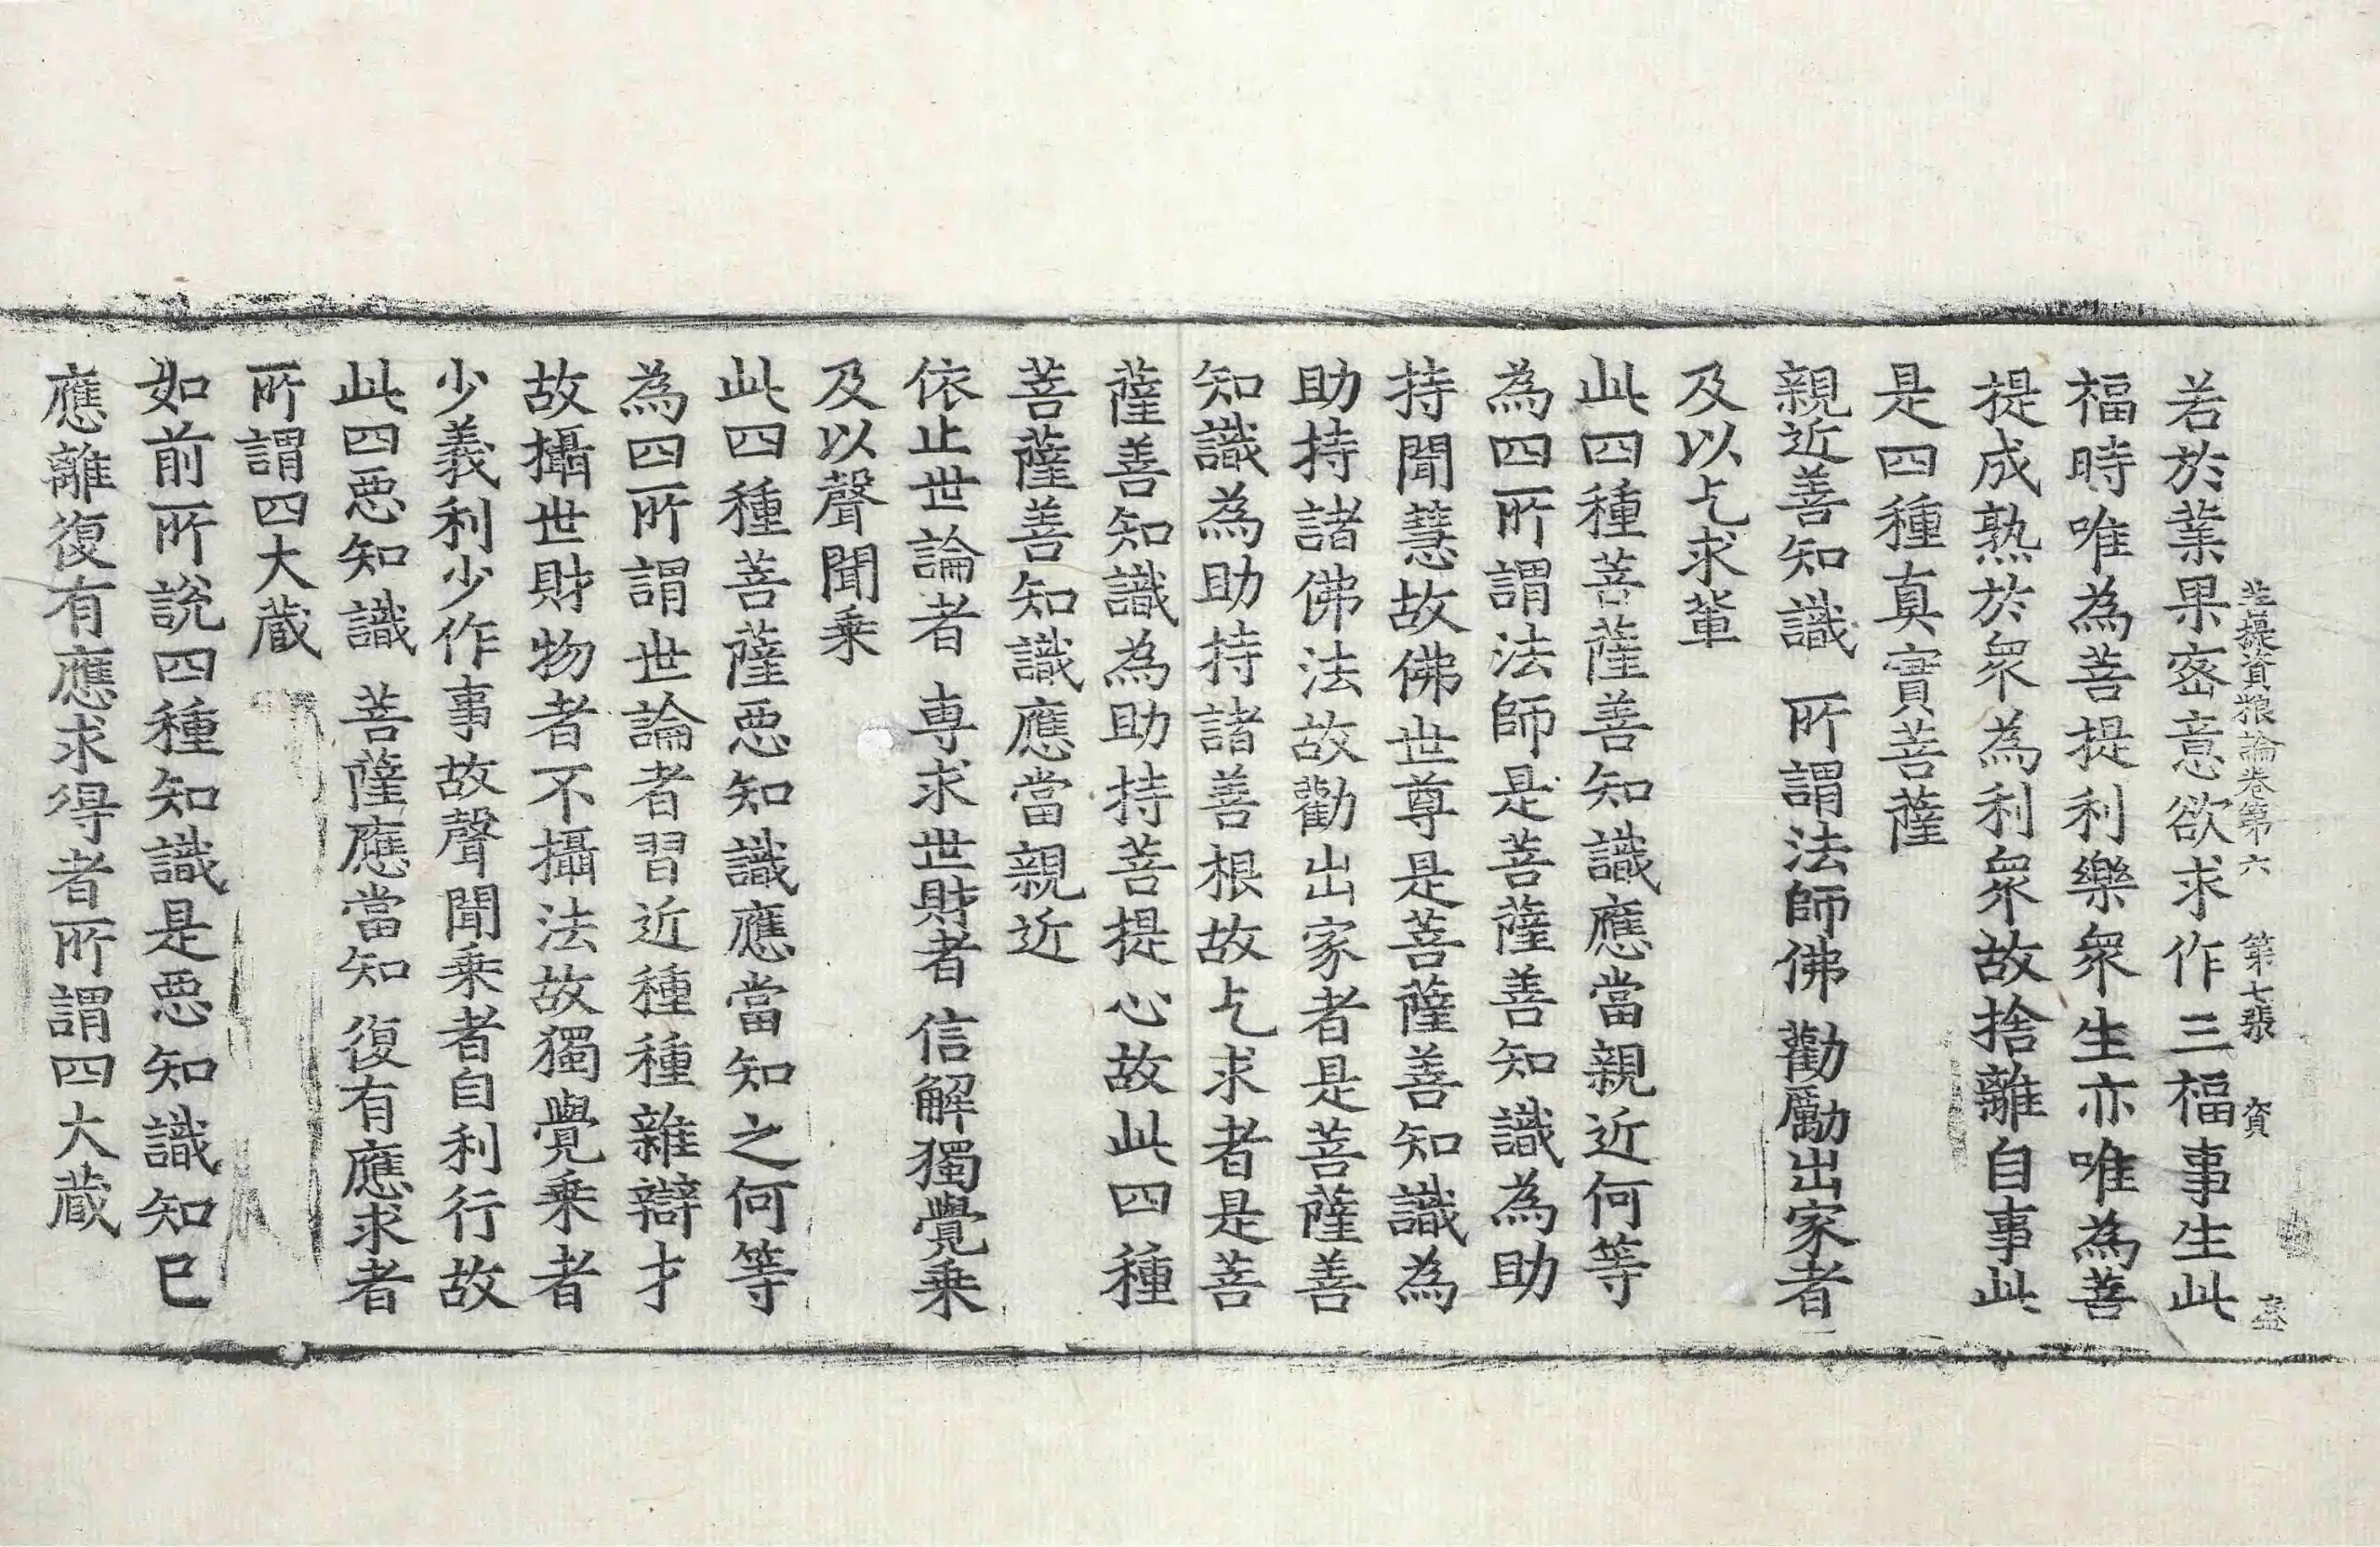 菩提資粮論卷第六　第七張　資
若於業果密意欲求作三福事生此
福時唯為菩提利樂衆生亦唯為菩
提成熟於衆為利衆故捨離自事此
是四種真實菩薩
親近善知識　所謂法師佛　勸勵出家者
及以乞求輩
此四種菩薩善知識應當親近何等
為四所謂法師是菩薩善知識為助
持聞慧故佛世尊是菩薩善知識為
助持諸佛法故勸出家者是菩薩善
知識為助持諸善根故乞求者是菩
薩善知識為助持菩提心故此四種
菩薩善知識應當親近
依止世論者　専求世財者　信解獨覺乗
及以聲聞乗
此四種菩薩惡知識應當知之何等
為四所謂世論者習近種種雜辯才
故攝世財物者不攝法故獨覺乗者
少義利少作事故聲聞乗者自利行故
此四惡知識　菩薩應當知　復有應求者
所謂四大蔵
如前所說四種知識是惡知識知已
應離復有應求得者所謂四大蔵